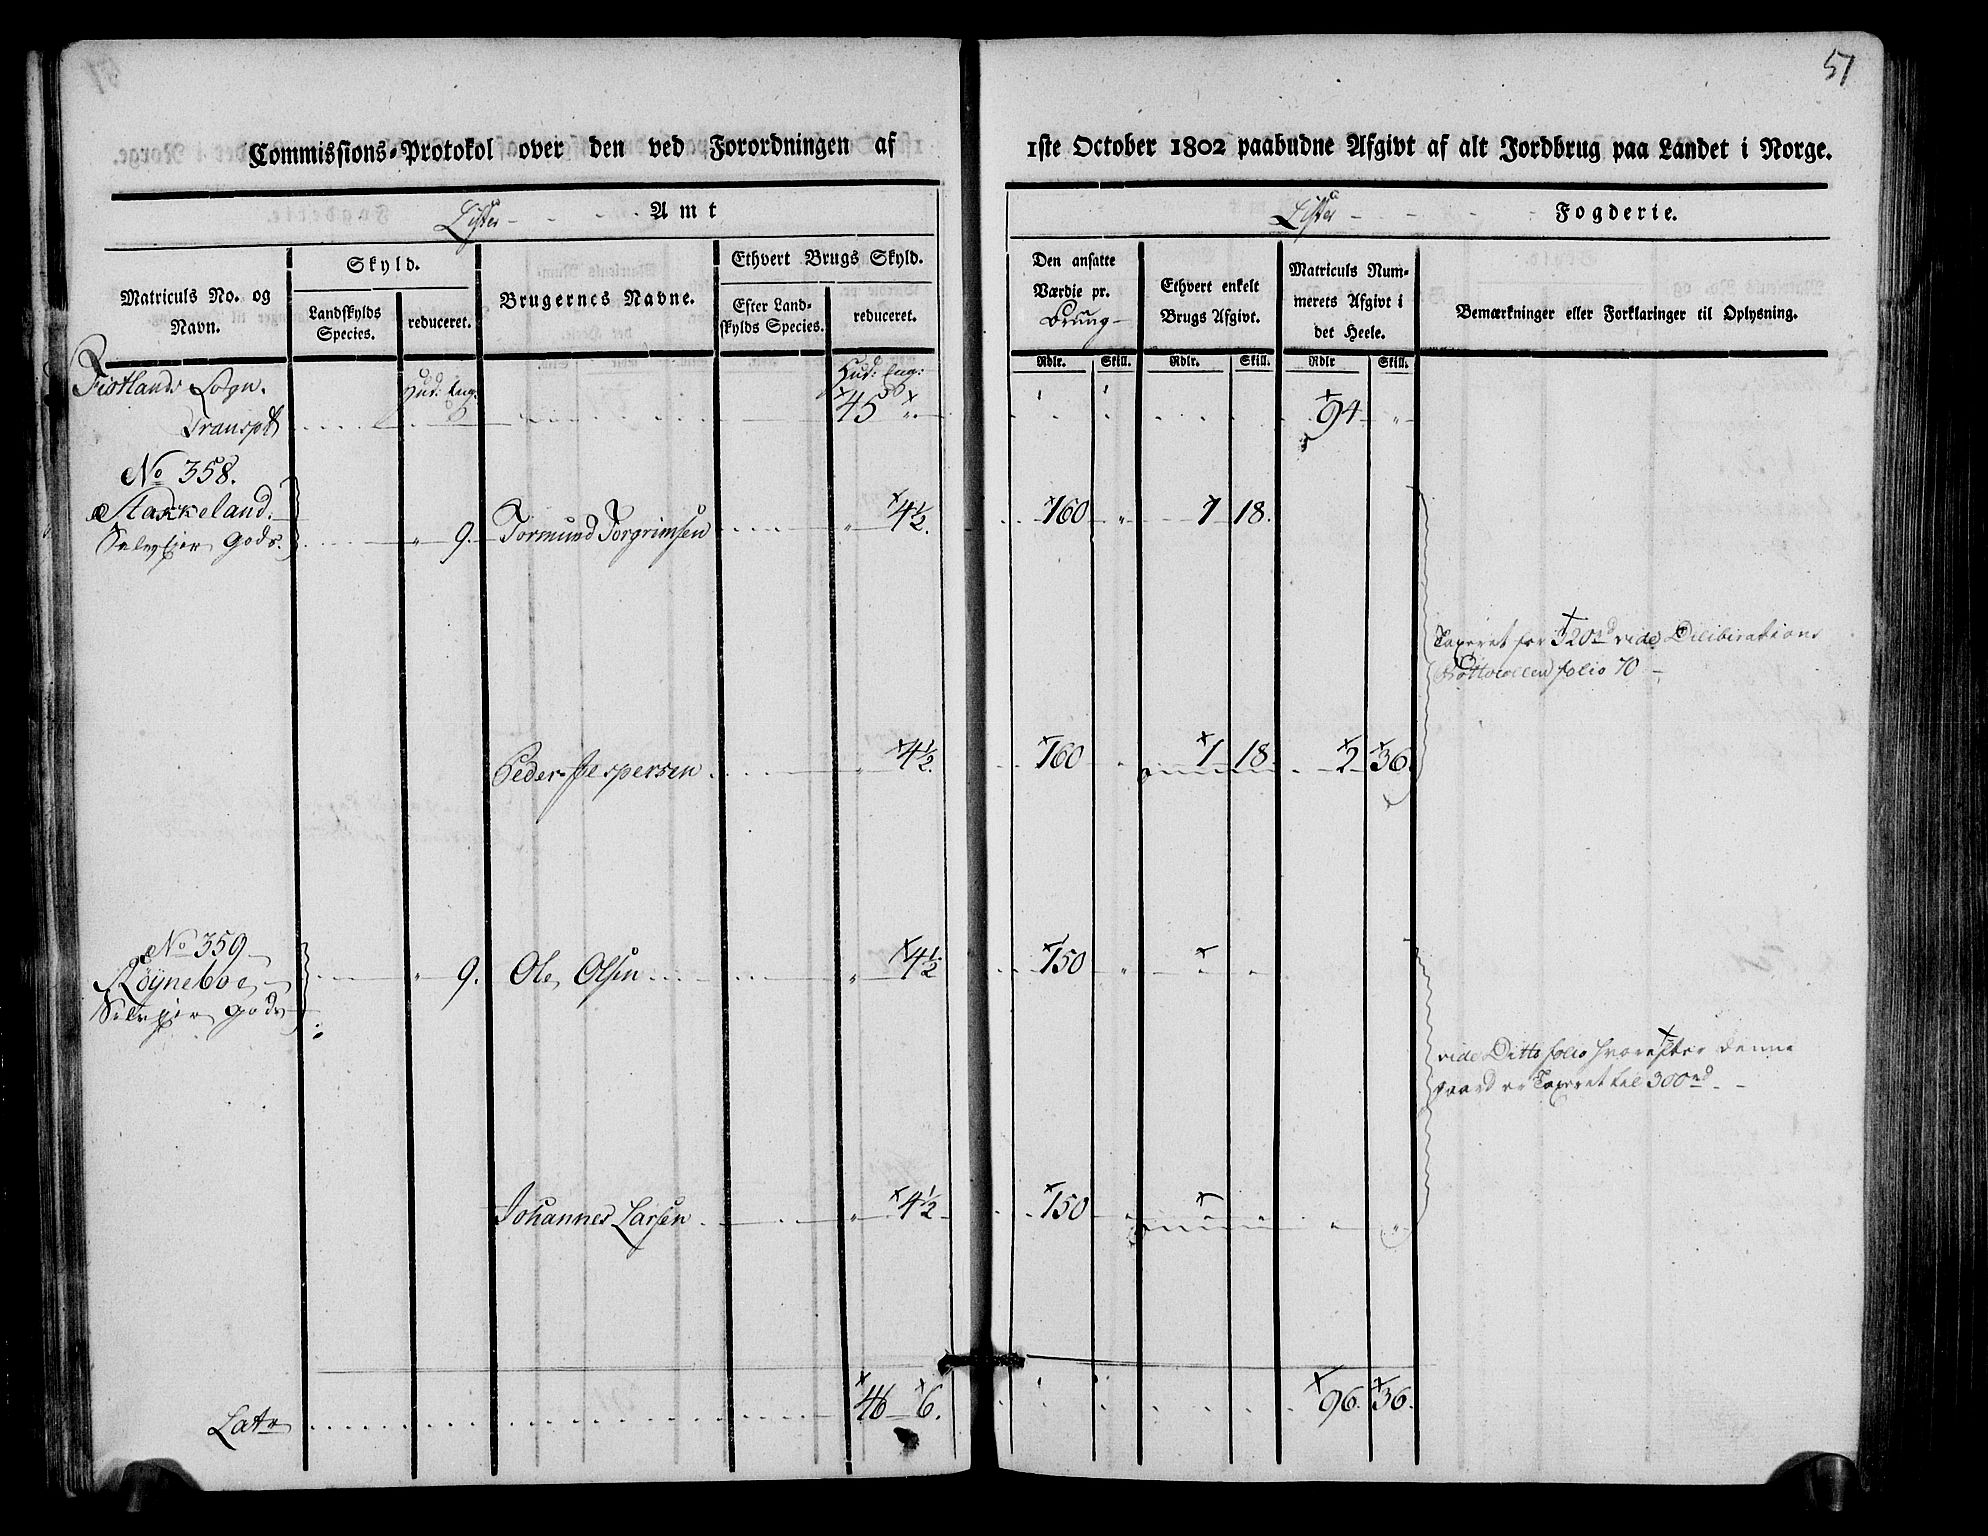 51
Commissions-Protokol over den ved Forordningen af 1ste October 1802 paabudne Afgivt af alt Jordbrug paa Landet i Norge.
Lister Amt
Lister Fogderie.
Matriculs No. og Navn.
Skyld.
Landskylds Species.
reduceret.
Brugernes Navne.
Ethvert Brugs Skyld.
Efter Landskylds Species.
reduceret.
Den ansatte Værdie pr. Brug
Ethvert enkelt Brugs Afgivt.
Matriculs Nummerets Afgivt i det Heele.
Bemærkninger eller Forklaringer til Oplysning.
Rdlr. Skill. Rdlr. Skill. Rdlr Skill.
Fiotlands Sogn.
Hud: Eng: Hud: Eng:
Transpt 45 " 94 "
No 358.
Stakkeland.
Selveier Gods. " 9. Tormund Torgrimsen " 4½. 160 " 1 18.
Taxeret for 320rd vide Deliberations
Protocollen folio 70
Peder Jespersen " 4½. 160 " 1 18. 2 36.
No 359
Røyneboe " 9. Ole Olsen " 4½ 150 " " "
Selveier Gods
vide Ditto folio hvorefter denne
gaard er Taxeret til 300rd
Johannes Larsen " 4½ 150 " " " "
Latr 46 6. 96. 36.